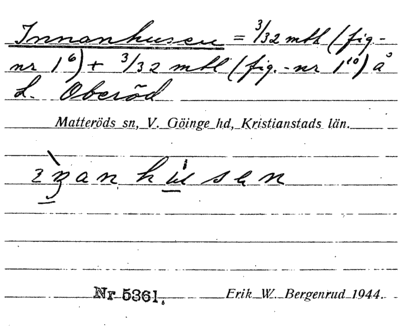 Innanhusen = 3/32 mtl (fig.-
nr 1⁶) + 3/32 mtl (fig.-nr 1¹⁰) å
L. Oberöd
Matteröds sn, V. Göinge hd, Kristianstads län.
husen
Nr 5361.
Erik W. Bergenrud 1944.